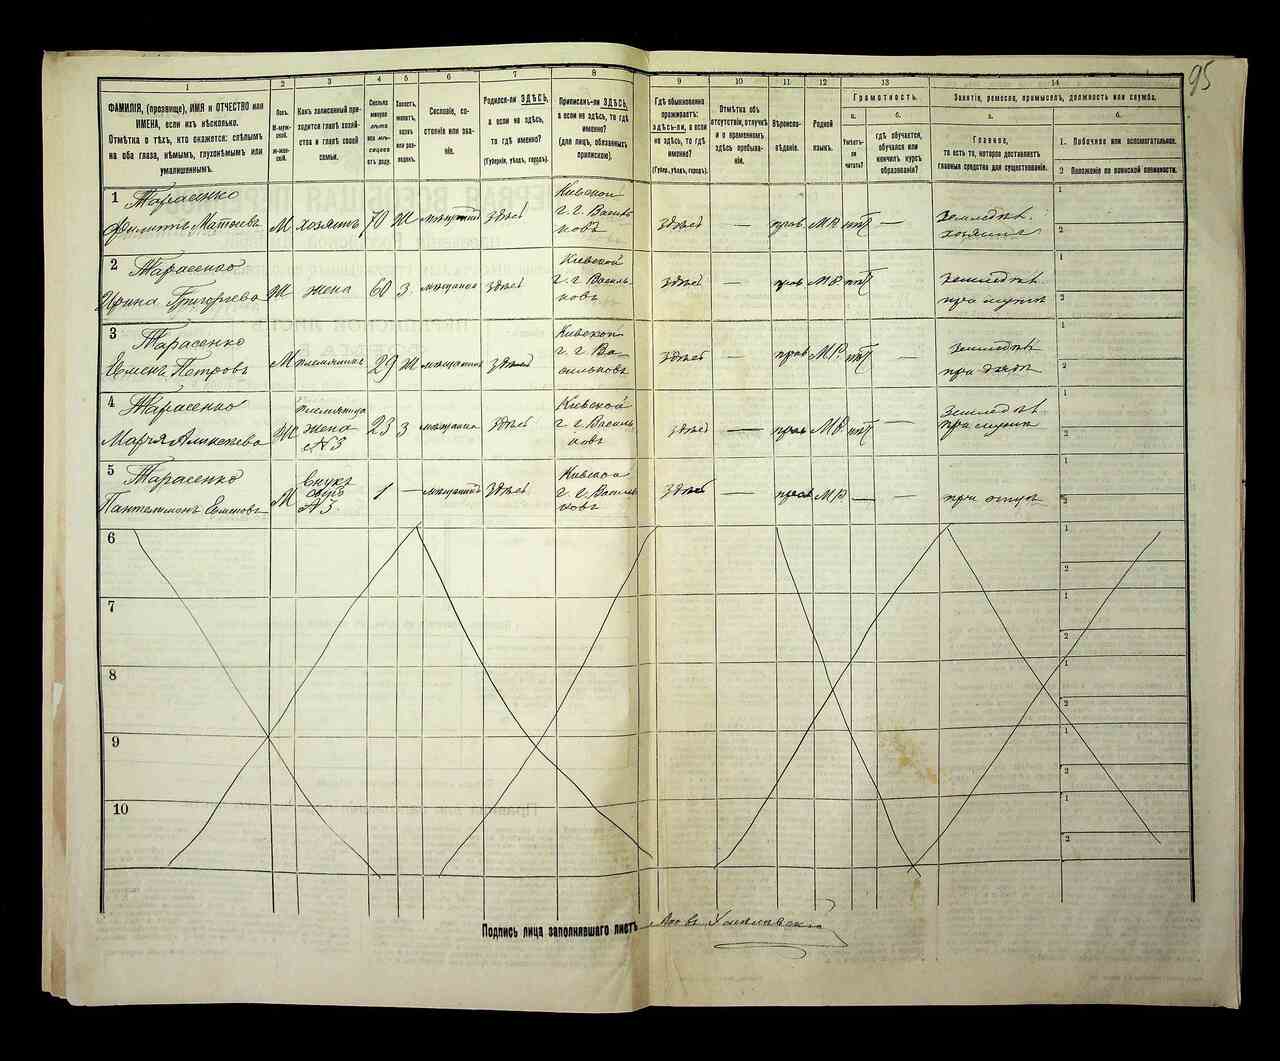 95
1
2
3
4
5
6
7
8
9
10
11
12
13
14
ФАМИЛІЯ, (прозвище), ИМЯ и ОТЧЕСТВО или
ИМЕНА, если ихъ нѣсколько.
Отмѣтка о тѣхъ, кто окажется: слѣпымъ
на оба глаза, нѣмымъ, глухонѣмымъ или
умалишеннымъ.
Полъ.
М-муж-
ской.
Ж-жен-
ской.
Какъ записанный при-
ходится главѣ хозяй-
ства и главѣ своей
семьи.
Сколько
минуло
лѣтъ
или мѣ-
сяцевъ
отъ роду.
Холостъ,
женатъ,
вдовъ
или раз-
веденъ.
Сословіе, со-
стояніе или зва-
ніе.
Родился-ли ЗДѢСЬ,
а если не здѣсь,
то гдѣ именно?
(Губернія, уѣздъ, городъ).
Приписанъ-ли ЗДѢСЬ,
а если не здѣсь, то гдѣ
именно?
(для лицъ, обязанныхъ
припискою).
Гдѣ обыкновенно
проживаетъ:
здѣсь-ли, а если
не здѣсь, то гдѣ
именно?
(Губер., уѣздъ, городъ).
Отмѣтка объ
отсутствіи, отлучкѣ
и о временномъ
здѣсь пребыва-
ніи.
Вѣроиспо-
вѣданіе.
Родной
языкъ.
Грамотность.
а.
Умѣетъ-
ли
читать?
б.
гдѣ обучается,
обучался или
кончилъ курсъ
образованія?
Занятіе, ремесло, промыселъ, должность или служба.
а.
Главное,
то есть то, которое доставляетъ
главныя средства для существованія.
б.
1. Побочное или вспомогательное.
2 Положеніе по воинской повинности.
1 Тарасенко
Филиппъ Матвѣевъ М хозяинъ 70 Ж мѣщанинъ здѣсь Кіевской г. г. Васильковъ здѣсь — прав. М.Р. — Земледѣл. хозяинъ 1 2
2 Тарасенко
Ирина Григорьева Ж жена 60 З. мѣщанка здѣсь Кіевской г. г. Васильковъ здѣсь — прав М.Р. — Земледѣл при мужѣ 1 2
3 Тарасенко
Семенъ Петровъ М племянникъ 29 Ж мѣщанинъ здѣсь Кіевской г. г. Васильковъ здѣсь — прав М.Р. — Земледѣл при дядѣ 1 2
4 Тарасенко
Марія Алексѣева Ж жена №3 23 З мѣщанка здѣсь Кіевской г. г. Васильковъ здѣсь — прав М.Р. — Земледѣл при мужѣ 1 2
5 Тарасенко
Пантелимонъ Семеновъ М внукъ №3. 1 — мѣщанинъ здѣсь г. г. Васильковъ здѣсь — прав М.Р. — — при отцѣ 1 2
6 1 2
7 1 2
8 1 2
9 1 2
10 1 2
Подпись лица заполнявшаго листъ